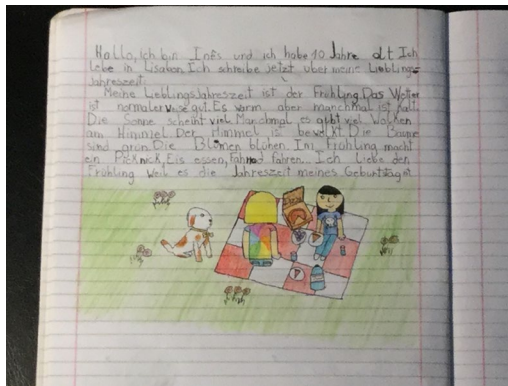 Hallo, Ich bin Inês und ich habe 10 Jahre alt Ich
lebe in Lisabon. Ich schreibe jetzt über meine Lieblings-
jahreszeit:
Meine Lieblingsjahreszeit ist der Frühling. Das Wetter
ist normalerweise gut. Es warm aber manchmal ist kalt.
Die Sonne scheint viel. Manchmal es gibt viel Wolken
am Himmel. Der Himmel is bewolkt. Die Baume
sind grün. Die Blumen blühen. Im Frühling macht
ein Picknick, Eis essen, fahrrad fahren... Ich liebe den
Frühling weil es die Jahreszeit meines Geburtstages